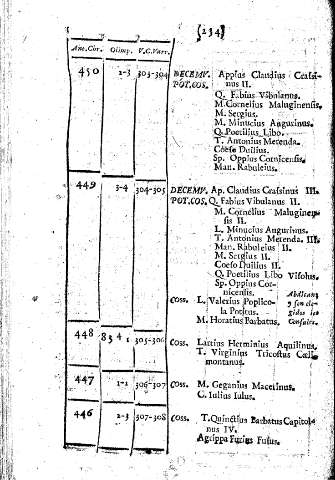 (234)
Ane.Cor. Olimp. V.C.Varr.
450 2-3 303-304 DECEMV. Appius Claudius Crassi-
POT.COS. nus II.
Q. Fabius Vibulanus.
M. Cornelius Maluginensis.
M. Sergius.
M. Minucius Augurinus.
Q. Poetilius Libo.
T. Antonius Merenda.
Coeso Duilius.
Sp. Oppius Cornicensis.
Man. Rabuleius.
449 3-4 304-305 DECEMV. Ap. Claudius Crassinus III.
POT.COS. Q. Fabius Vibulanus II.
M. Cornelius Maluginen-
sis II.
L. Minucius Augurinus.
T. Antonius Merenda. III.
Man. Rabuleius II.
M. Sergius II.
Coeso Duilius II.
Q. Poetilius Libo Visolus.
Sp. Oppius Cor-
nicensis.
COSS. L. Valerius Poplico-
la Potitus.
M. Horatius Barbatus.
448 83 4 1 305-306 COSS. Lartius Herminius Aquilinus.
T. Virginius Tricostus Cæli-
montanus.
447 1-2 306-307 COSS. M. Geganius Macerinus.
C. Iulius Iulus.
446 2-3 307-308 COSS. T. Quinctius Barbatus Capitoli-
nus IV.
Agrippa Furius Fusus.